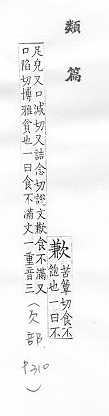 類篇
歉苦簟切食不
飽也一曰不
足皃又口減切又詰念切說文歉食不滿又
口陷切博雅貧也一曰食不滿文一重音三
(欠部 P310)